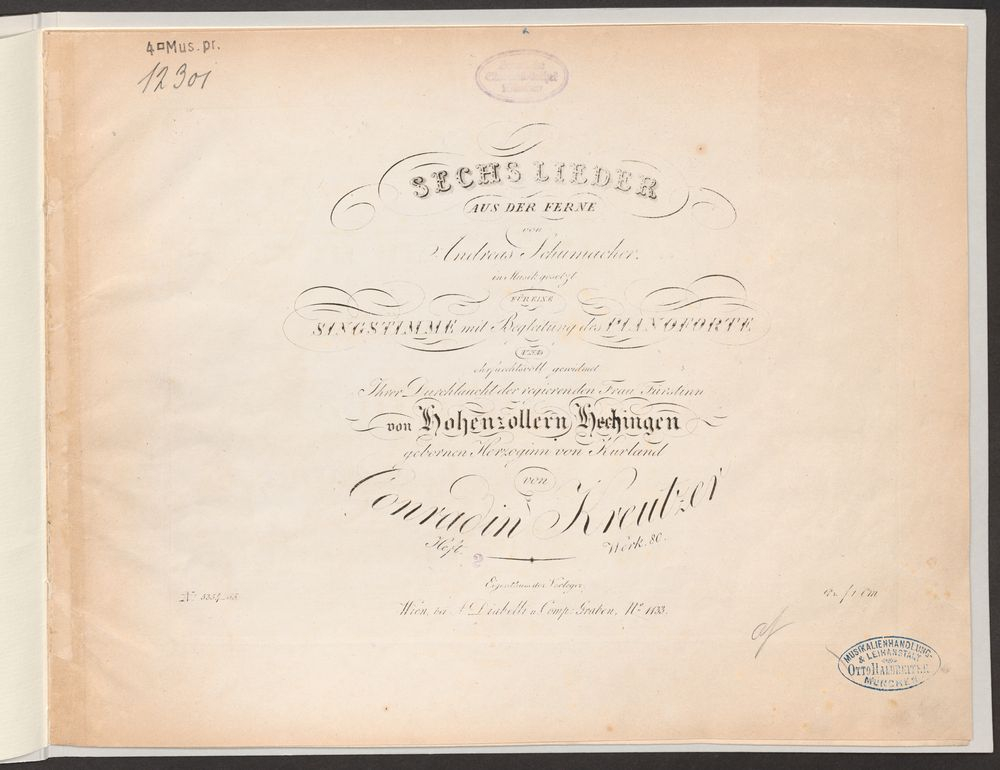 4° Mus. pr.
12301
SECHS LIEDER
AUS DER FERNE
von
Andreas Schumacher.
in Musik gesetzt
FÜR EINE
SINGSTIMME mit Begleitung des PIANOFORTE
UND
ehrfurchtsvoll gewidmet
Ihrer Durchlaucht der regierenden Frau Fürstinn
von Hohenzollern Hechingen
gebornen Herzoginn von Kurland
von
Conradin Kreutzer
Heft. 2 Werk. 80.
Eigenthum der Verleger.
Wien, bei A. Diabelli u. Comp. Graben, No. 1133.
MUSIKALIENHANDLUNG-
& LEIHANSTALT
OTTO HALBREITER
MÜNCHEN